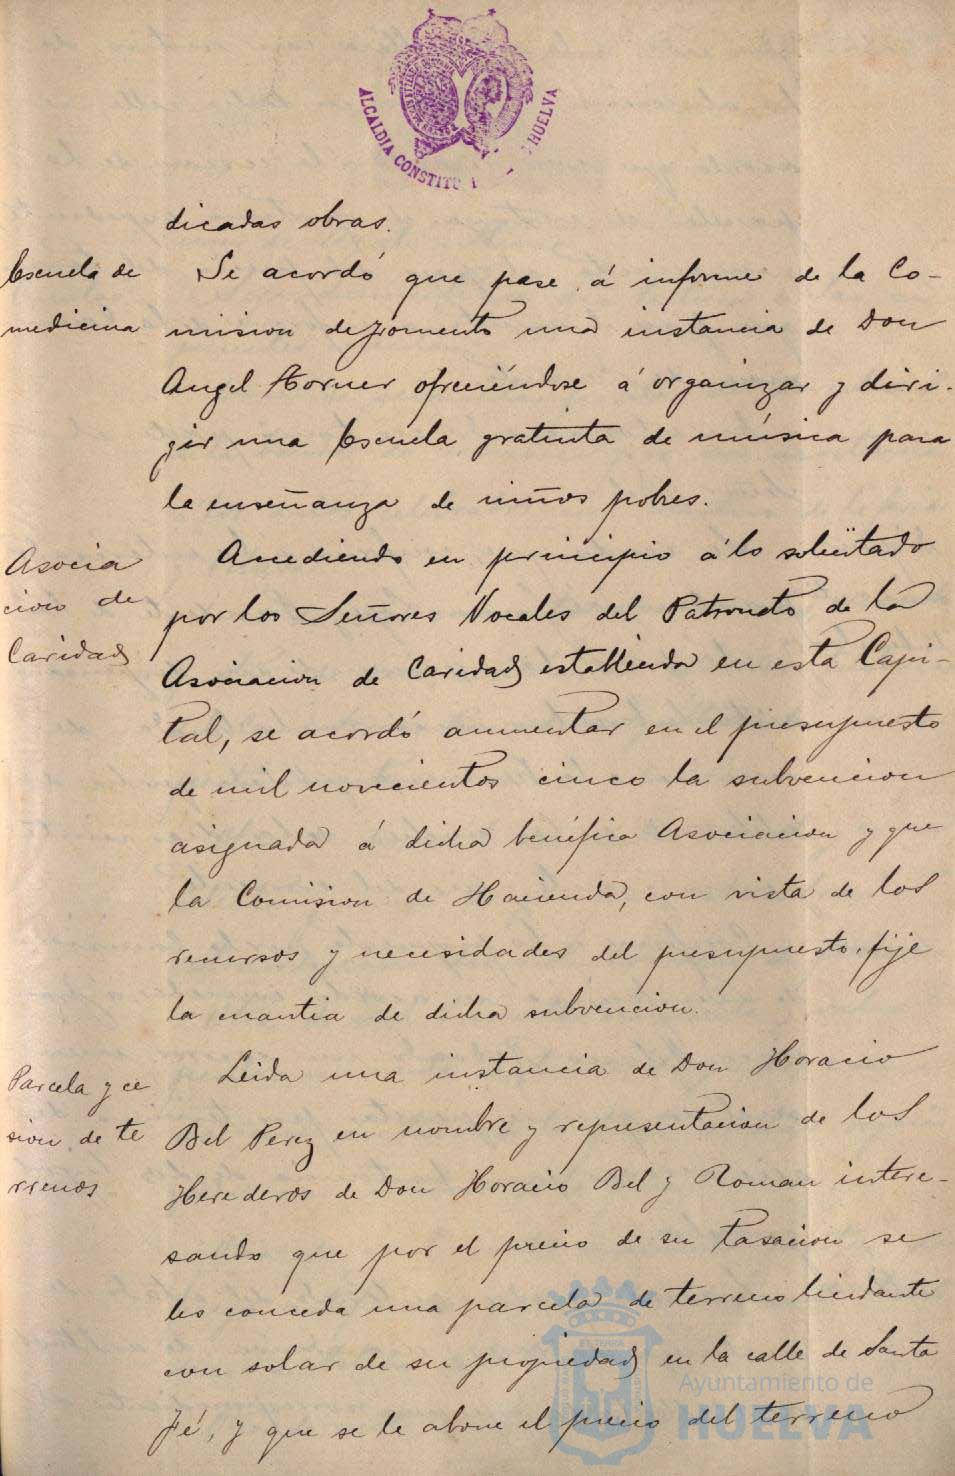 ALCALDIA CONSTITU HUELVA
dicadas obras.
Escuela de
medicina
Se acordó que pase á informe de la Co-
mision de Fomento una instancia de Don
Angel Horner ofreciéndose á organizar y diri-
gir una Escuela gratuita de música para
la enseñanza de niños pobres.
Asocia
cion de
Caridad
Accediendo en principio á lo solicitado
por los Señores Vocales del Patronato de la
Asociacion de Caridad establecida en esta Capi-
tal, se acordó aumentar en el presupuesto
de mil novecientos cinco la subvencion
asignada á dicha benéfica Asociacion y que
la Comision de Hacienda, con vista de los
recursos y necesidades del presupuesto, fije
la cuantia de dicha subvencion.
Parcela y ce
sion de te
rrenos
Leida una instancia de Don Horacio
Bel Perez en nombre y representacion de los
Herederos de Don Horacio Bel y Roman intere-
sando que por el precio de su tasacion se
les conceda una parcela de terreno lindante
con solar de su propiedad en la calle de Santa
Fé, y que se le abone el precio del terreno
Ayuntamiento de
HUELVA